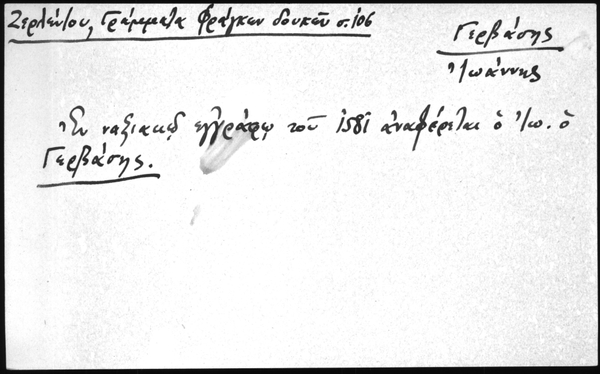 Ζερλέντου, Γράμματα Φράγκων δουκῶν σ. 106
Γερβάσης
Ἰωάννης
Ἐν ναξιακῷ ἐγγράφῳ τοῦ 1581 ἀναφέρεται ὁ Ἰω. ὁ
Γερβάσης.